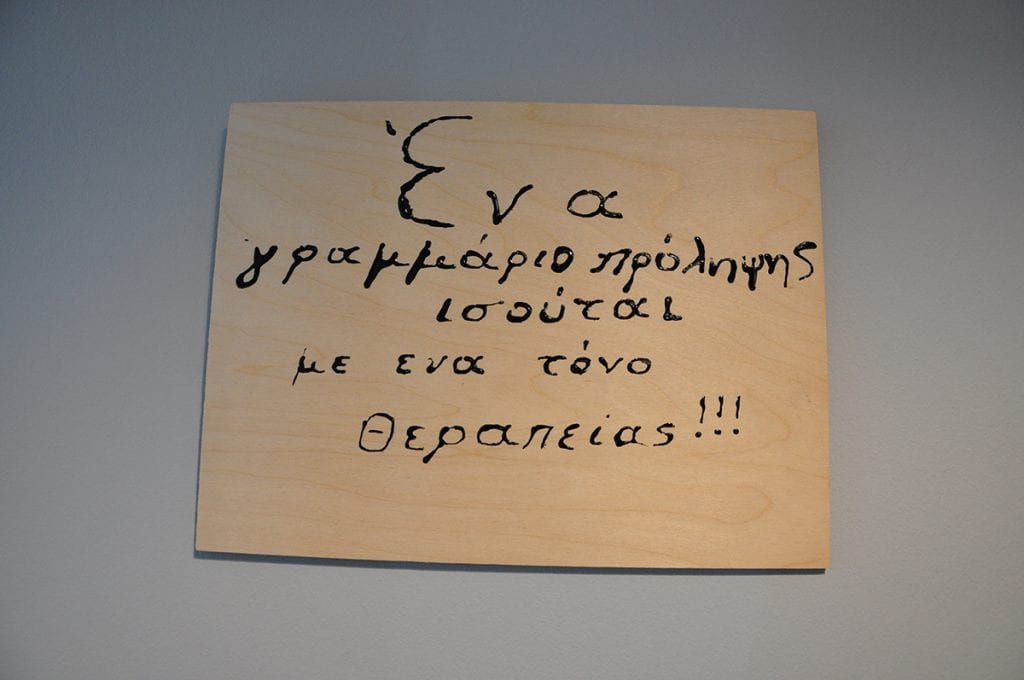 Ένα
γραμμάριο πρόληψης
ισούται
με ενα τόνο
Θεραπείας!!!